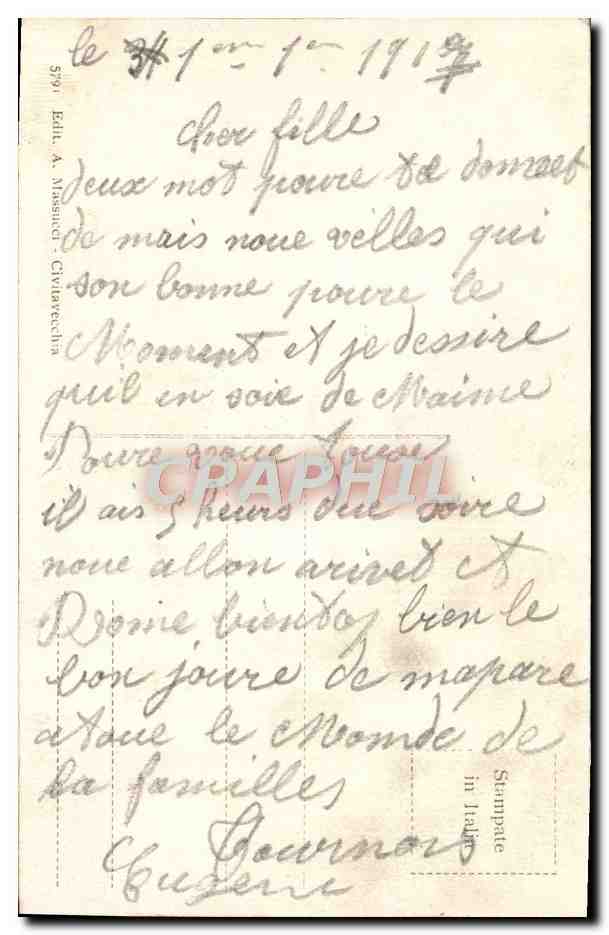 le 1er 1er 1917
cher fille
deux mot poure te domest
de mais noue velles qui
son bonne poure le
Moment et je dessire
quil en soie de Maime
Poure voue touse
il ais 5 heurs due soire
noue allon arivet A
Rome bientos bien le
bon joure de mapare
atoue le Momde de
la familles
Tournois
Eugene
5791 Edit. A. Massucci - Civitavecchia
Stampate
in Italia
CPAPHIL